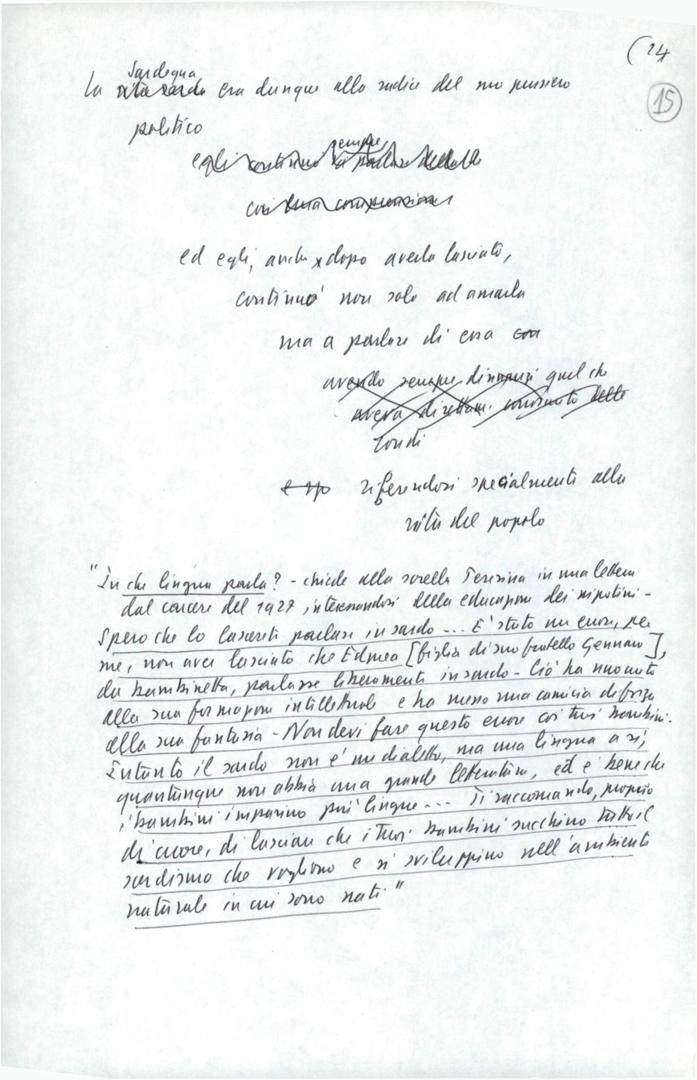 (24
15
Sardegna
La vita sarda era dunque alla radice del suo pensiero
politico
sempre
egli continuò a parlare della
con una
ed egli, anche dopo averla lasciata,
continuò non solo ad amarla
ma a parlare di essa con
avendo sempre dinnanzi quel che
aveva direttam. conosciuto delle
riferendosi specialmente alla
vita del popolo
"In che lingua parla? - chiede alla sorella Teresina in una lettera
dal carcere del 1927, interessandosi della educazione dei nipotini -
Spero che lo lascerete parlare in sardo ... E' stato un errore, per
me, non aver lasciato che Edmea [figlia di suo fratello Gennaro],
da bambinetta, parlasse liberamente in sardo - Ciò ha nuociuto
alla sua formazione intellettuale e ha messo una camicia di forza
alla sua fantasia - Non devi fare questo errore coi tuoi bambini.
Intanto il sardo non è un dialetto, ma una lingua a sé,
quantunque non abbia una grande letteratura, ed è bene che
i bambini imparino più lingue ... Ti raccomando, proprio
di cuore, di lasciare che i tuoi bambini succhino tutto il
sardismo che vogliono e si sviluppino nell'ambiente
naturale in cui sono nati."